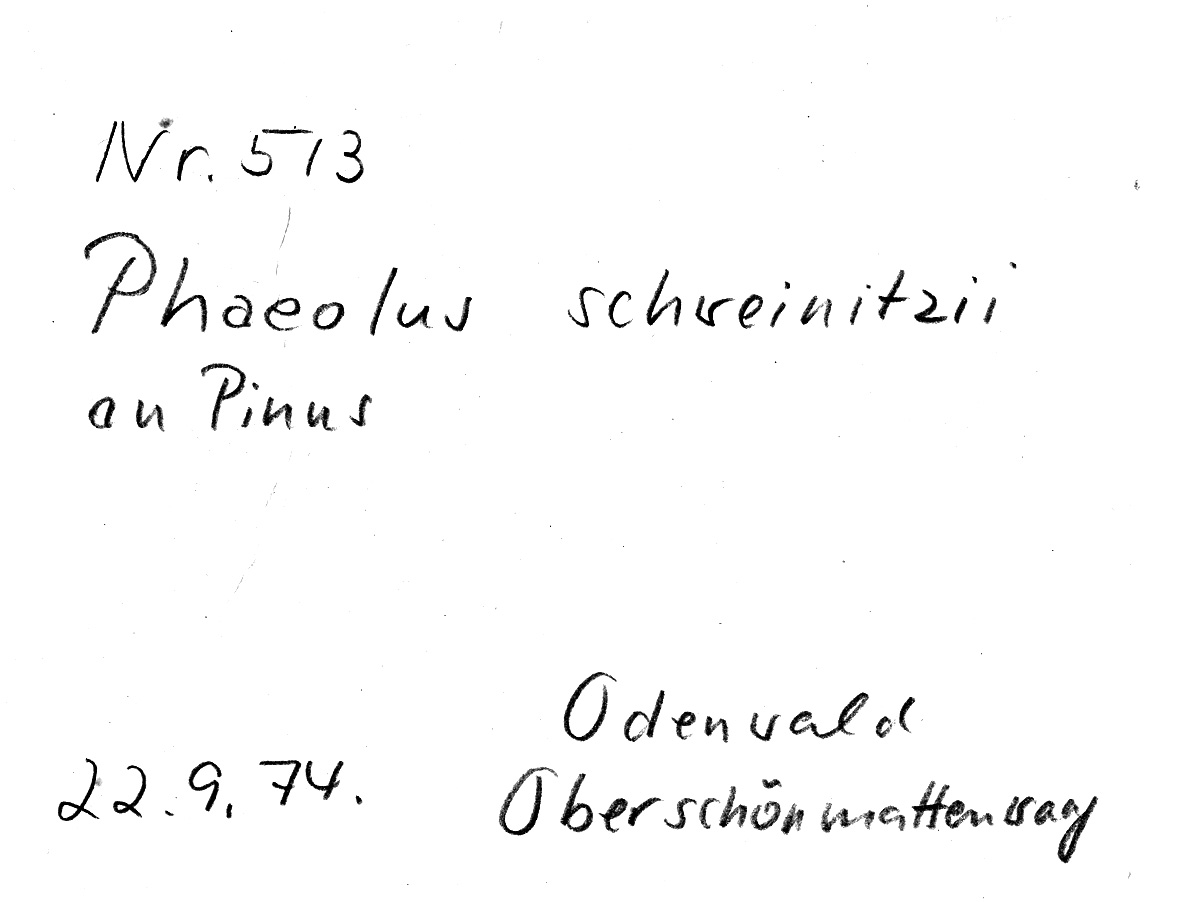 Nr. 513
Phaeolus schweinitzii
an Pinus
Odenwald
22.9.74. Oberschönmattenwag